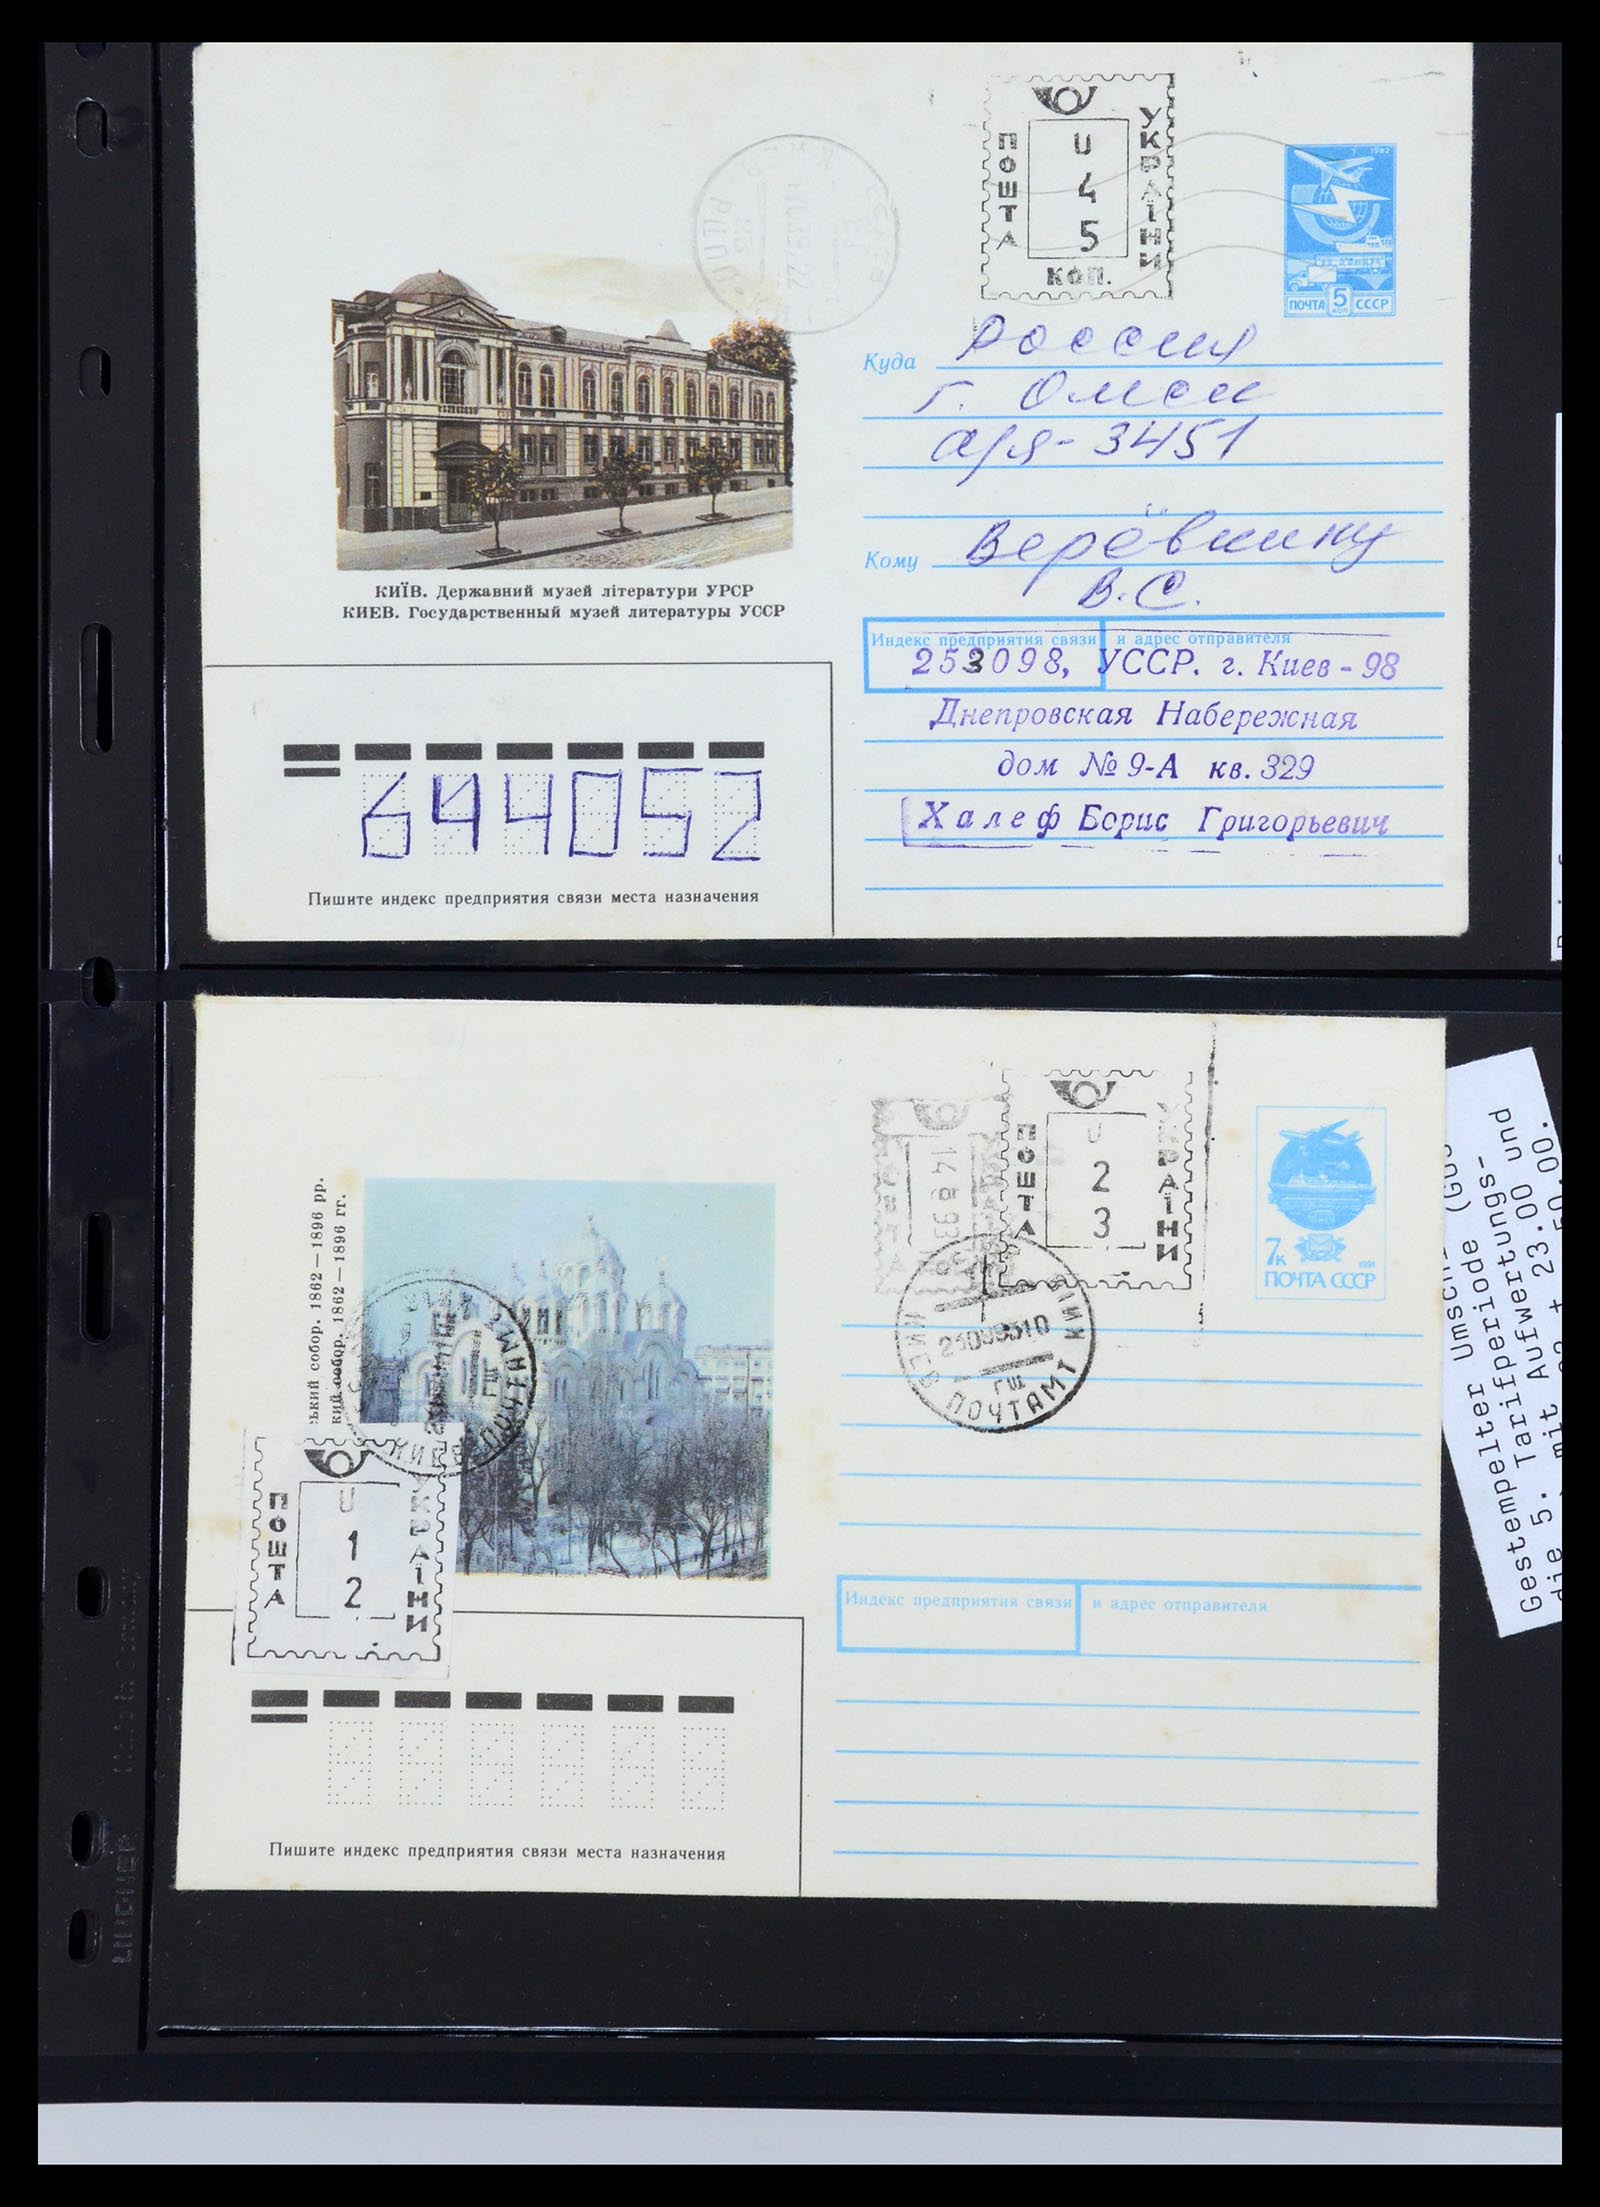 ПОШТА
УКРАЇНИ
U
4
5
КОП.
1982
ПОЧТА 5 КОП СССР
Куда Россия
г. Омск
а/я - 3451
Кому Верёвкину
В. С.
КИЇВ. Державний музей літератури УРСР
КИЕВ. Государственный музей литературы УССР
Индекс предприятия связи и адрес отправителя
253098, УССР. г. Киев - 98
Днепровская Набережная
дом № 9-А кв. 329
Халеф Борис Григорьевич
644052
Пишите индекс предприятия связи места назначения
ПОШТА
УКРАЇНИ
U
2
3
14 8 93
7к
1991
ПОЧТА СССР
КИЕВ ПОЧТАМТ КИЇВ
ГШ
ський собор. 1862—1896 рр.
кий собор. 1862—1896 гг.
КИЕВ
ГШ
ПОШТА
УКРАЇНИ
U
1
2
Индекс предприятия связи и адрес отправителя
Пишите индекс предприятия связи места назначения
Gestempelter
Tarifperiode
die 5. Tarifperiodungs-
Aufwertungs-
mit 23.00 und
50.00.